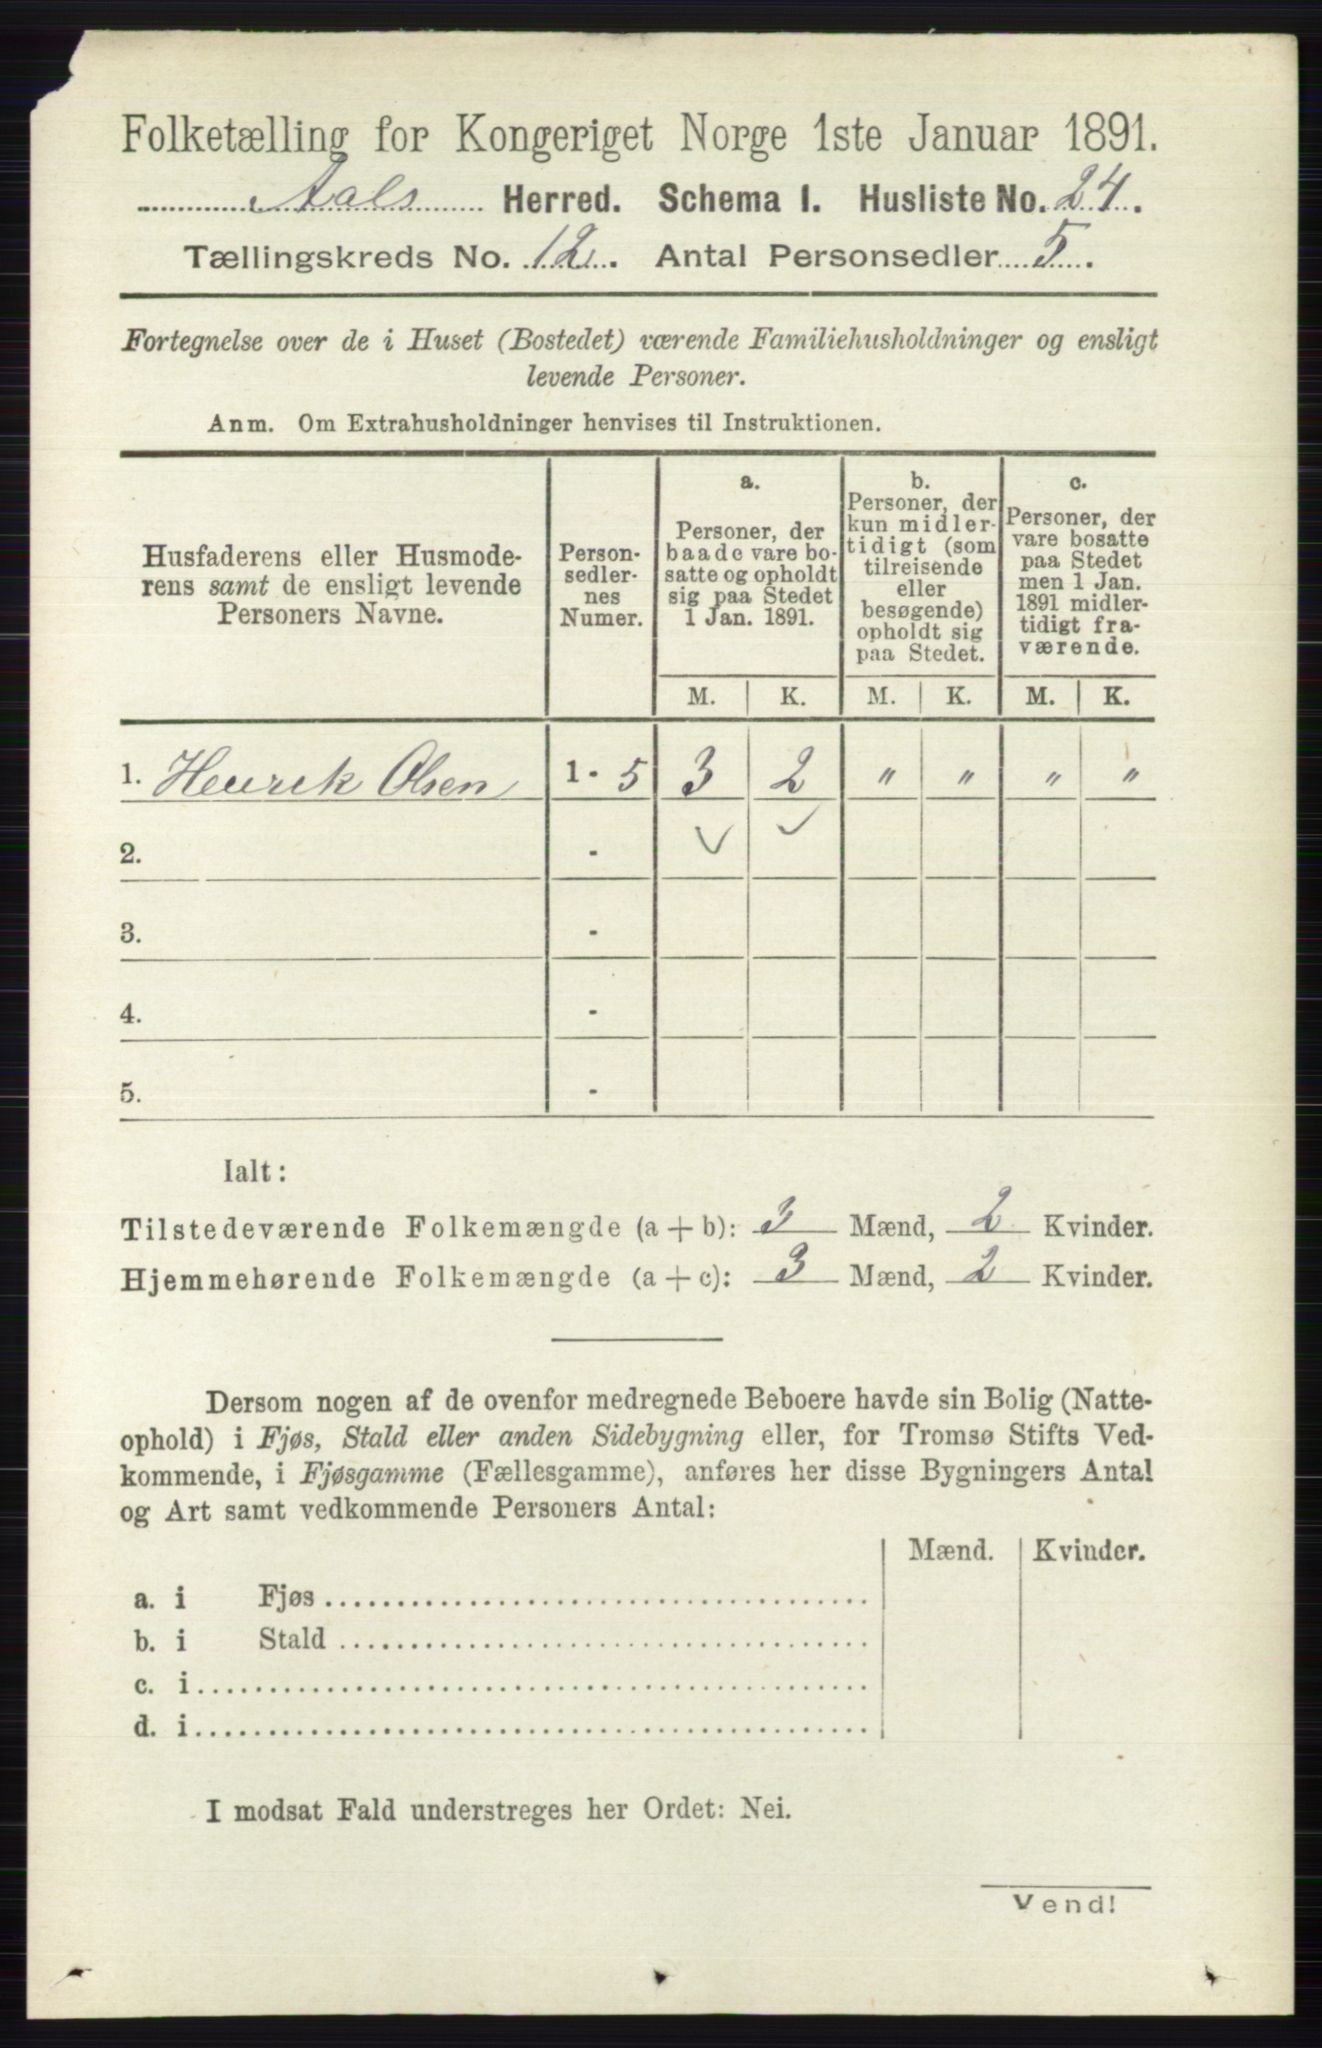 Folketælling for Kongeriget Norge 1ste Januar 1891.
Aals Herred. Schema I. Husliste No. 24.
Tællingskreds No. 12. Antal Personsedler 5.
Fortegnelse over de i Huset (Bostedet) værende Familiehusholdninger og ensligt
levende Personer.
Anm. Om Extrahusholdninger henvises til Instruktionen.
Husfaderens eller Husmode-
rens samt de ensligt levende
Personers Navne.
Person-
sedler-
nes
Numer.
a.
Personer, der
baade vare bo-
satte og opholdt
sig paa Stedet
1 Jan. 1891.
b.
Personer, der
kun midler-
tidigt (som
tilreisende
eller
besøgende)
opholdt sig
paa Stedet.
c.
Personer, der
vare bosatte
paa Stedet
men 1 Jan.
1891 midler-
tidigt fra-
værende.
M. K. M. K. M. K.
1. Henrik Olsen 1 - 5 3 2 " " " "
2. - ✓ ✓
3. -
4. -
5. -
Ialt:
Tilstedeværende Folkemængde (a + b): 3 Mænd, 2 Kvinder.
Hjemmehørende Folkemængde (a + c): 3 Mænd, 2 Kvinder.
Dersom nogen af de ovenfor medregnede Beboere havde sin Bolig (Natte-
ophold) i Fjøs, Stald eller anden Sidebygning eller, for Tromsø Stifts Ved-
kommende, i Fjøsgamme (Fællesgamme), anføres her disse Bygningers Antal
og Art samt vedkommende Personers Antal:
Mænd. Kvinder.
a. i Fjøs
b. i Stald
c. i
d. i
I modsat Fald understreges her Ordet: Nei.
Vend!